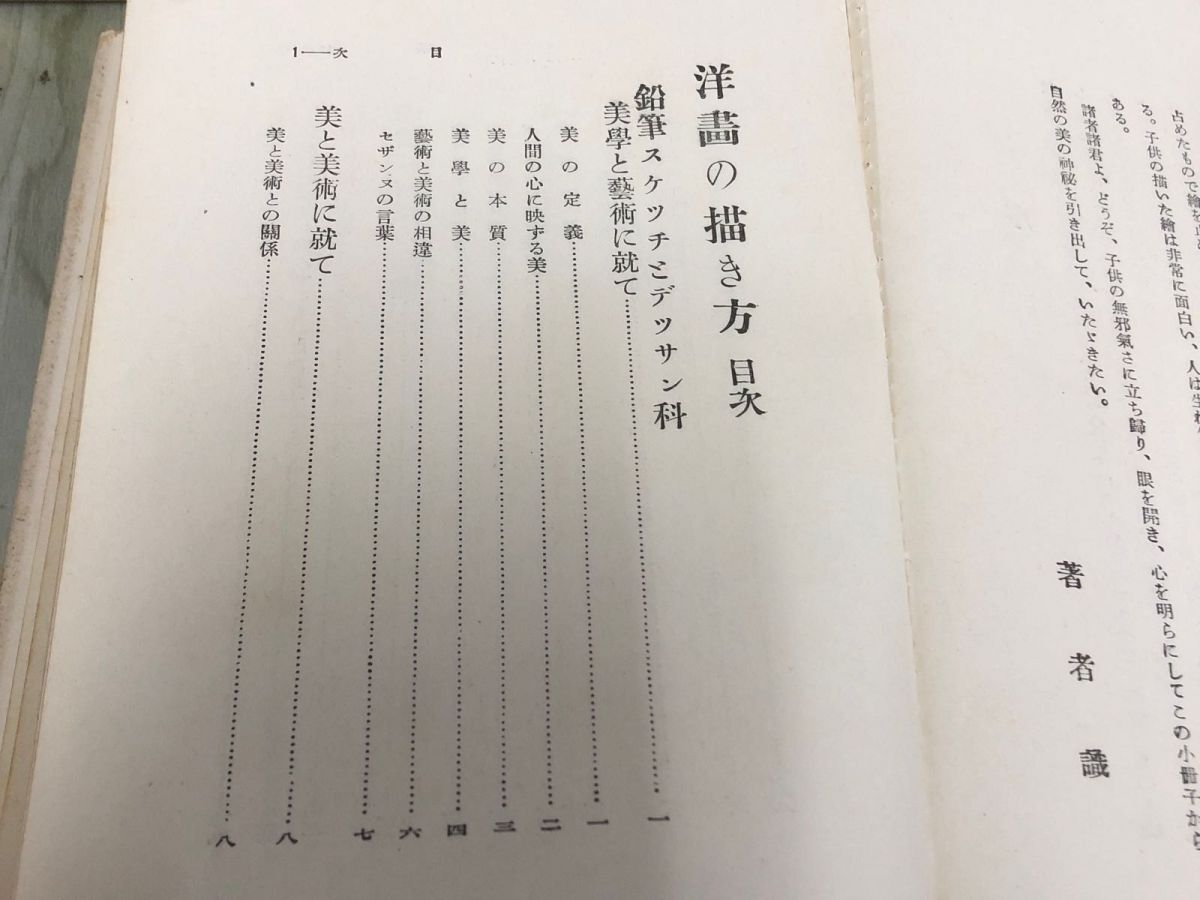 占めたもので繪を
る。子供の描いた繪は非常に面白い、人は生れ
ある。
諸者諸君よ、どうぞ、子供の無邪氣さに立ち歸り、眼を開き、心を明らにしてこの小冊子から
自然の美の神秘を引き出して、いたゞきたい。
著者識
目次――1
洋畵の描き方 目次
鉛筆スケツチとデツサン科
美學と藝術に就て……一
美の定義……一
人間の心に映ずる美……二
美の本質……三
美學と美……四
藝術と美術の相違……六
セザンヌの言葉……七
美と美術に就て……八
美と美術との關係……八